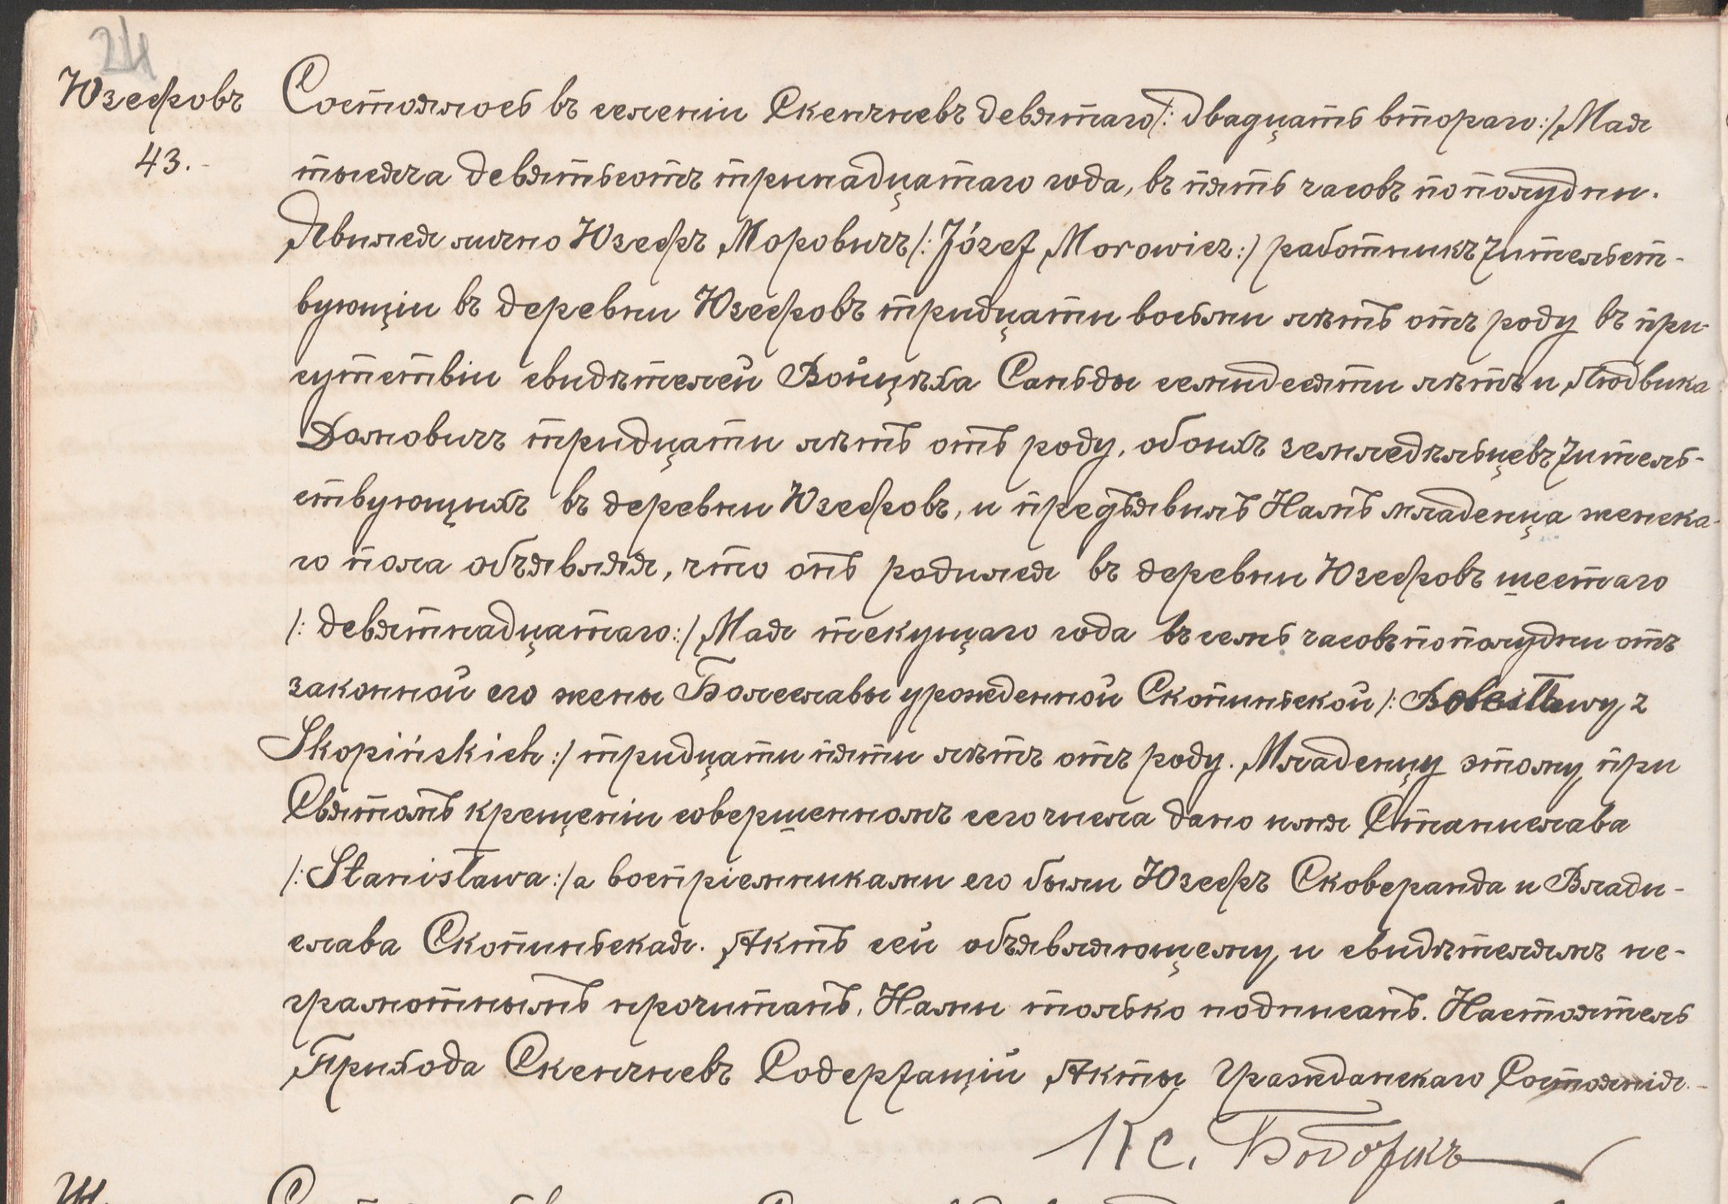 24
Юзефовъ
43.-
Состоялось въ селеніи Скенчневъ девятаго /: двадцать втораго :/ Мая
тысяча девятьсотъ тринадцатаго года, въ пять часовъ пополудни.
Явился лично Юзефъ Моровичъ /: Józef Morowicz :/ работникъ жительст-
вующіи въ деревни Юзефовъ тридцати восьми лѣтъ отъ роду въ при-
сутствіи свидѣтелей Войцѣха Саньды семидесяти лѣтъ и Людвика
Домовичъ тридцати лѣтъ отъ роду, обоихъ земледѣльцевъ житель-
ствующихъ въ деревни Юзефовъ, и предъявилъ Намъ младенца женска-
го пола объявляя, что онъ родился въ деревни Юзефовъ шестаго
/: девятнадцатаго :/ Мая текущаго года въ семь часовъ пополудни отъ
законной его жены Болеславы урожденной Скопинской /: Bolesławy z
Skopińskich :/ тридцати пяти лѣтъ отъ роду. Младенцу этому при
Святомъ крещеніи совершенномъ сего числа дано имя Станислава
/: Stanisława :/ а воспріемниками его были Юзефъ Сковеранда и Влади-
слава Скопиньская. Актъ сей объявляющему и свидѣтелямъ не-
грамотнымъ прочитанъ, Нами только подписанъ. Настоятель
Прихода Скенчневъ Содержащій Акты Гражданскаго Состоянія.-
Кс.